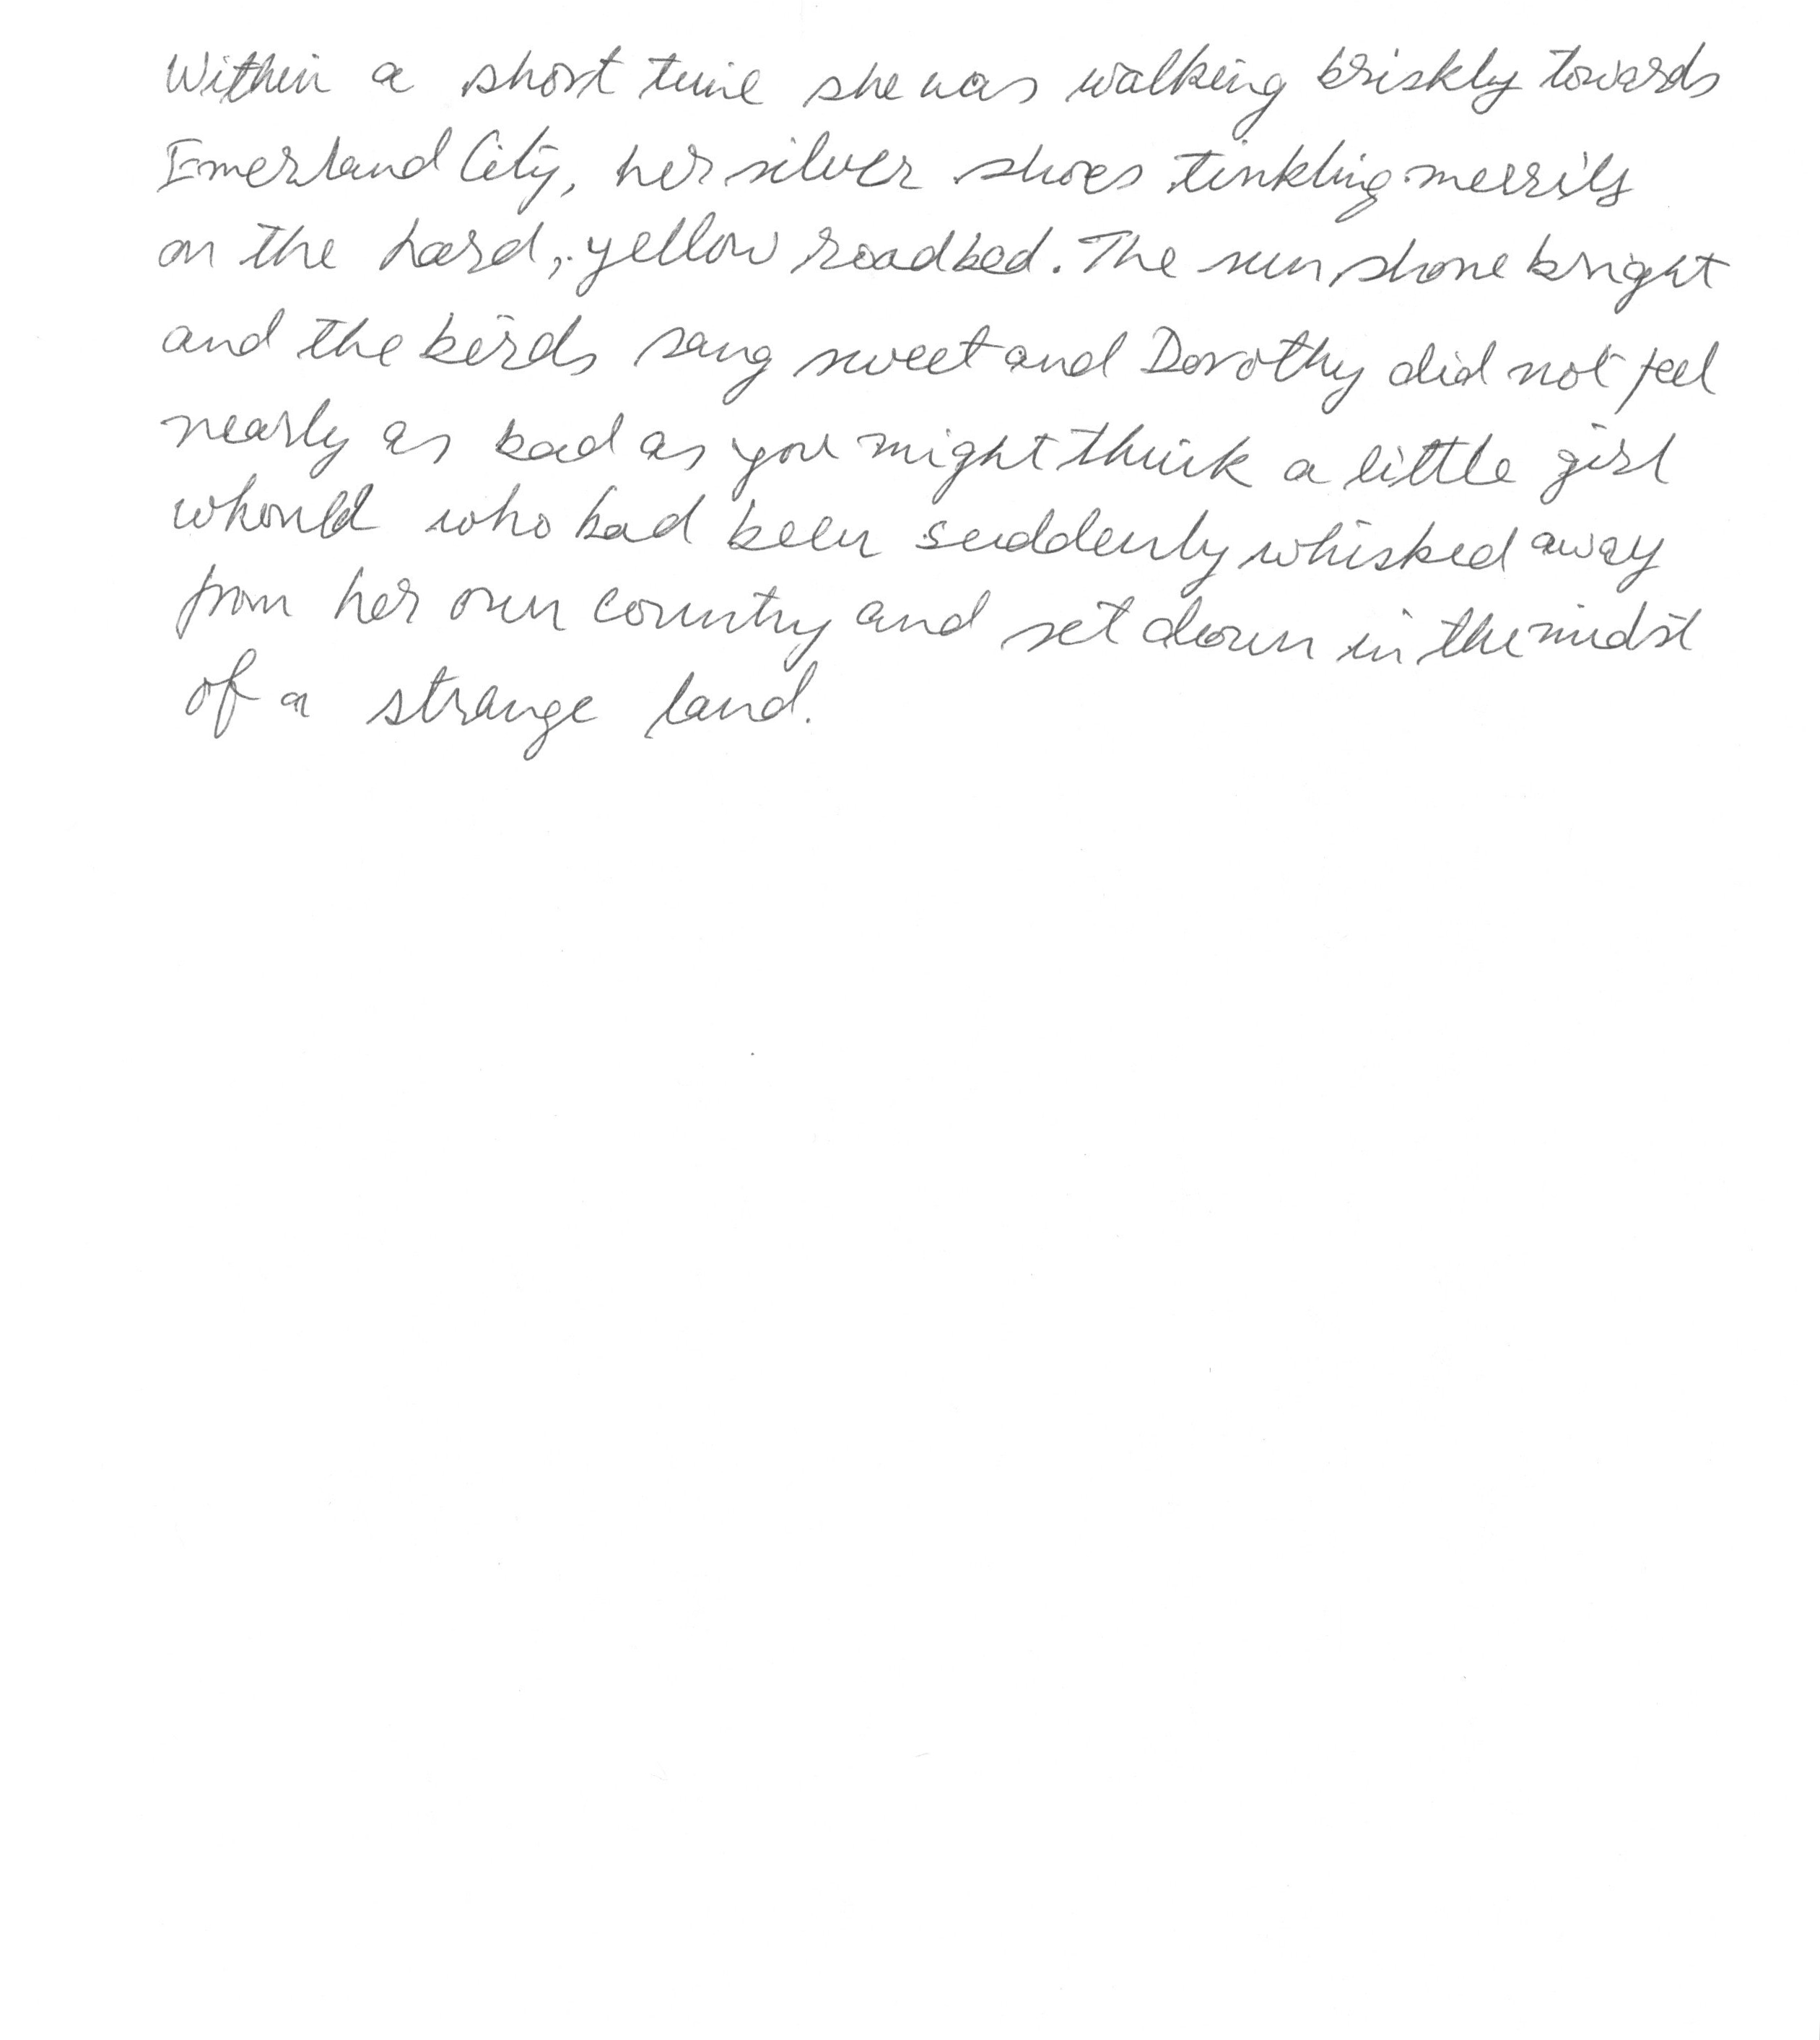 Within a short time she was walking briskly towards
Emerland City, her silver shoes tinkling merrily
on the hard, yellow roadbed. The sun shone bright
and the birds sang sweet and Dorothy did not feel
nearly as bad as you might think a little girl
whould who had been suddenly whisked away
from her own country and set down in the midst
of a strange land.